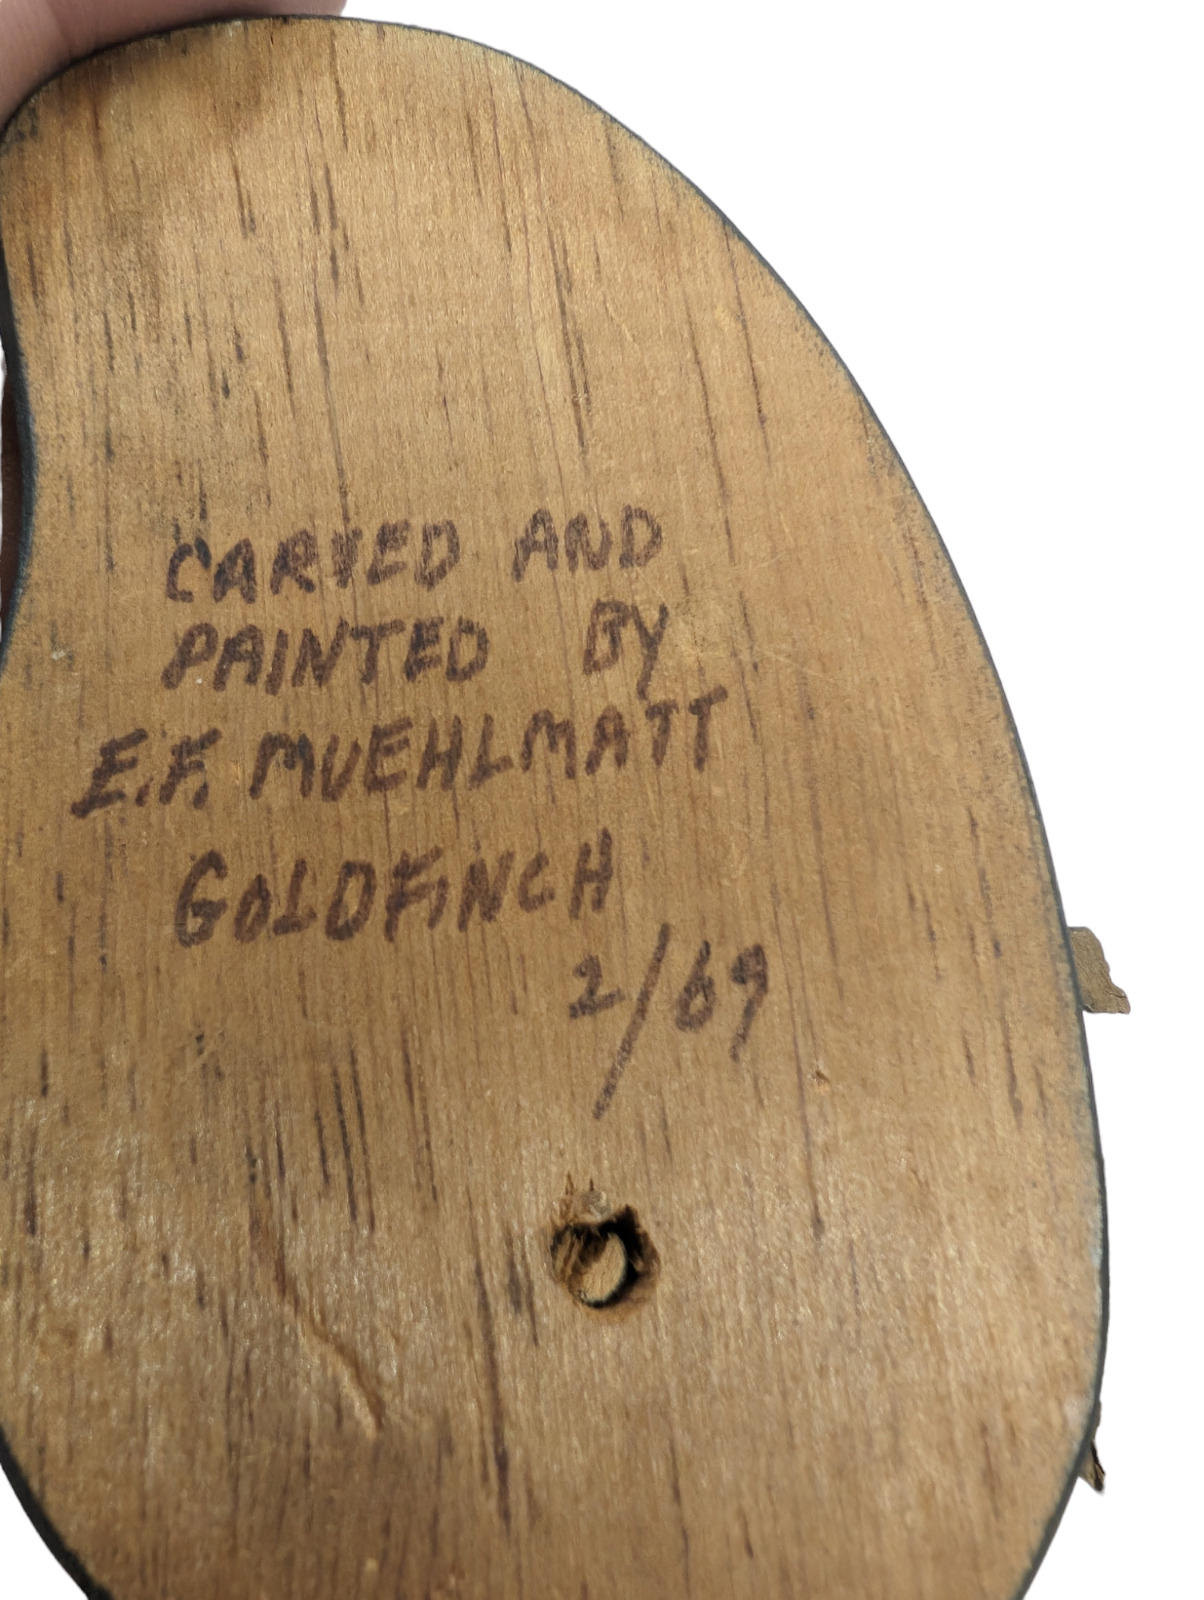 CARVED AND
PAINTED BY
E.F. MUEHLMATT
GOLDFINCH
2/69